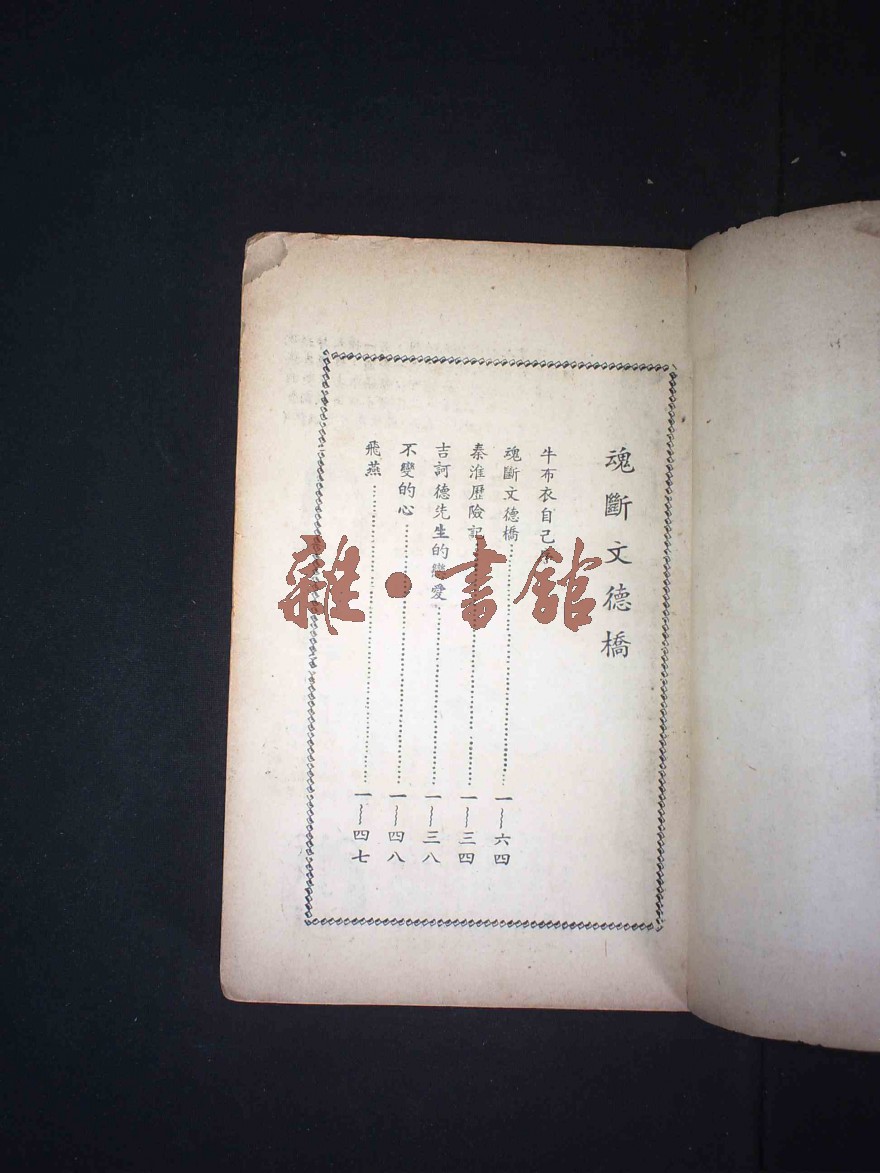 魂斷文德橋
牛布衣自己序
魂斷文德橋……一～六四
秦淮歷險記……一～三四
吉訶德先生的戀愛……一～三八
不變的心……一～四八
飛燕……一～四七
雜·書館